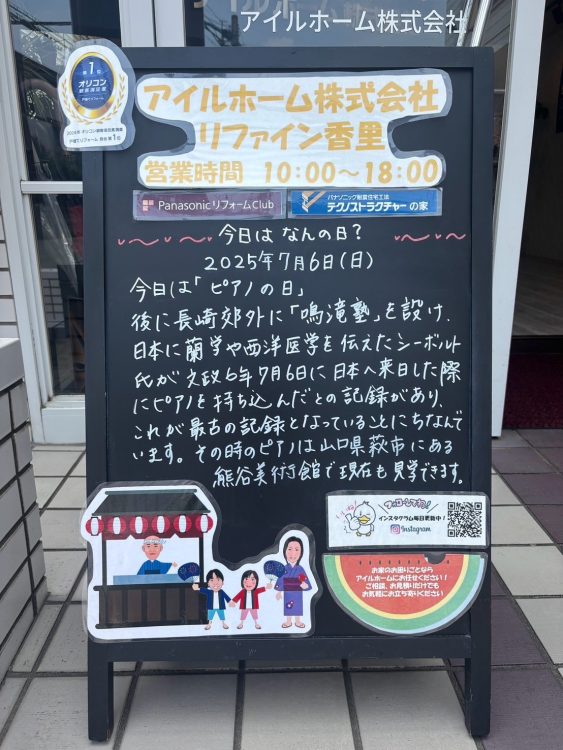 アイルホーム株式会社
第1位
オリコン
顧客満足度
戸建てリフォーム
アイルホーム株式会社
リファイン香里
営業時間 10:00～18:00
Panasonic リフォームClub
パナソニック耐震住宅工法
テクノストラクチャーの家
今日は なんの日?
2025年7月6日(日)
今日は「ピアノの日」
後に長崎郊外に「鳴滝塾」を設け、
日本に蘭学や西洋医学を伝えたシーボルト
氏が文政6年7月6日に日本へ来日した際
にピアノを持ち込んだとの記録があり、
これが最古の記録となっていることにちなんで
います。その時のピアノは山口県萩市にある
熊谷美術館で現在も見学できます。
いいね!
フォローしてね!
インスタグラム毎日更新中!
Instagram
お家のお困りごとなら
アイルホームにお任せください!
ご相談、お見積りだけでも
お気軽にお立ち寄りください